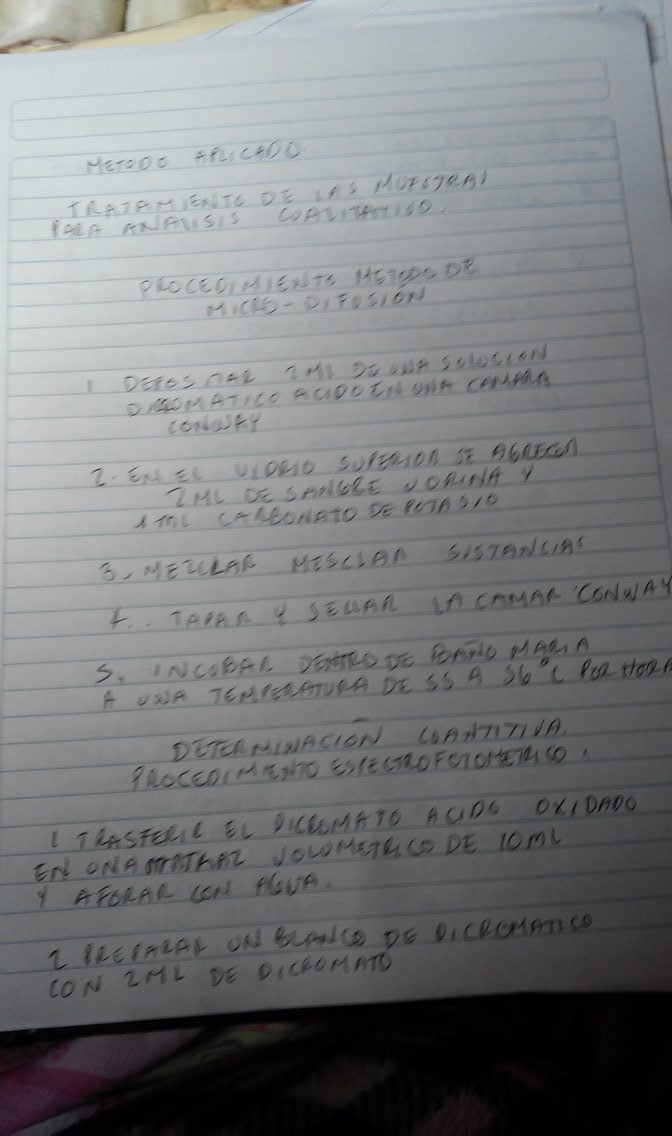 METODO APLICADO
TRATAMIENTO DE LAS MUESTRAS
PARA ANALISIS COALITATIVO.
PROCEDIMIENTO METODO DE
MICRO-DIFUSIÓN
1 DEPOSITAR 2ML DE UNA SOLUCION
ACIDO EN UNA CAMARA
CONWAY
2- EN EL VIDRIO SUPERIOR SE AGREGA
2ML DE SANGRE U ORINA Y
1 ML CARBONATO DE POTASIO
3. MEZCLAR MESCLAR SISTANCIAS
4.. TAPAR Y SELLAR LA CAMAR CONWAY
5. INCUBAR DENTRO DE BAÑO MARIA
A UNA TEMPERATURA DE 55 A 56°C POR HORA
DETERMINACION COANTITIVA.
PROCEDIMIENTO ESPECTROFOTOMETRICO.
1 TRASFERIR EL DICROMATO ACIDO OXIDADO
EN UNA VOLUMETRICO DE 10ML
Y AFORAR CON AGUA.
2 PREPARAR UN BLANCO DE DICROMATICO
CON 2ML DE DICROMATO